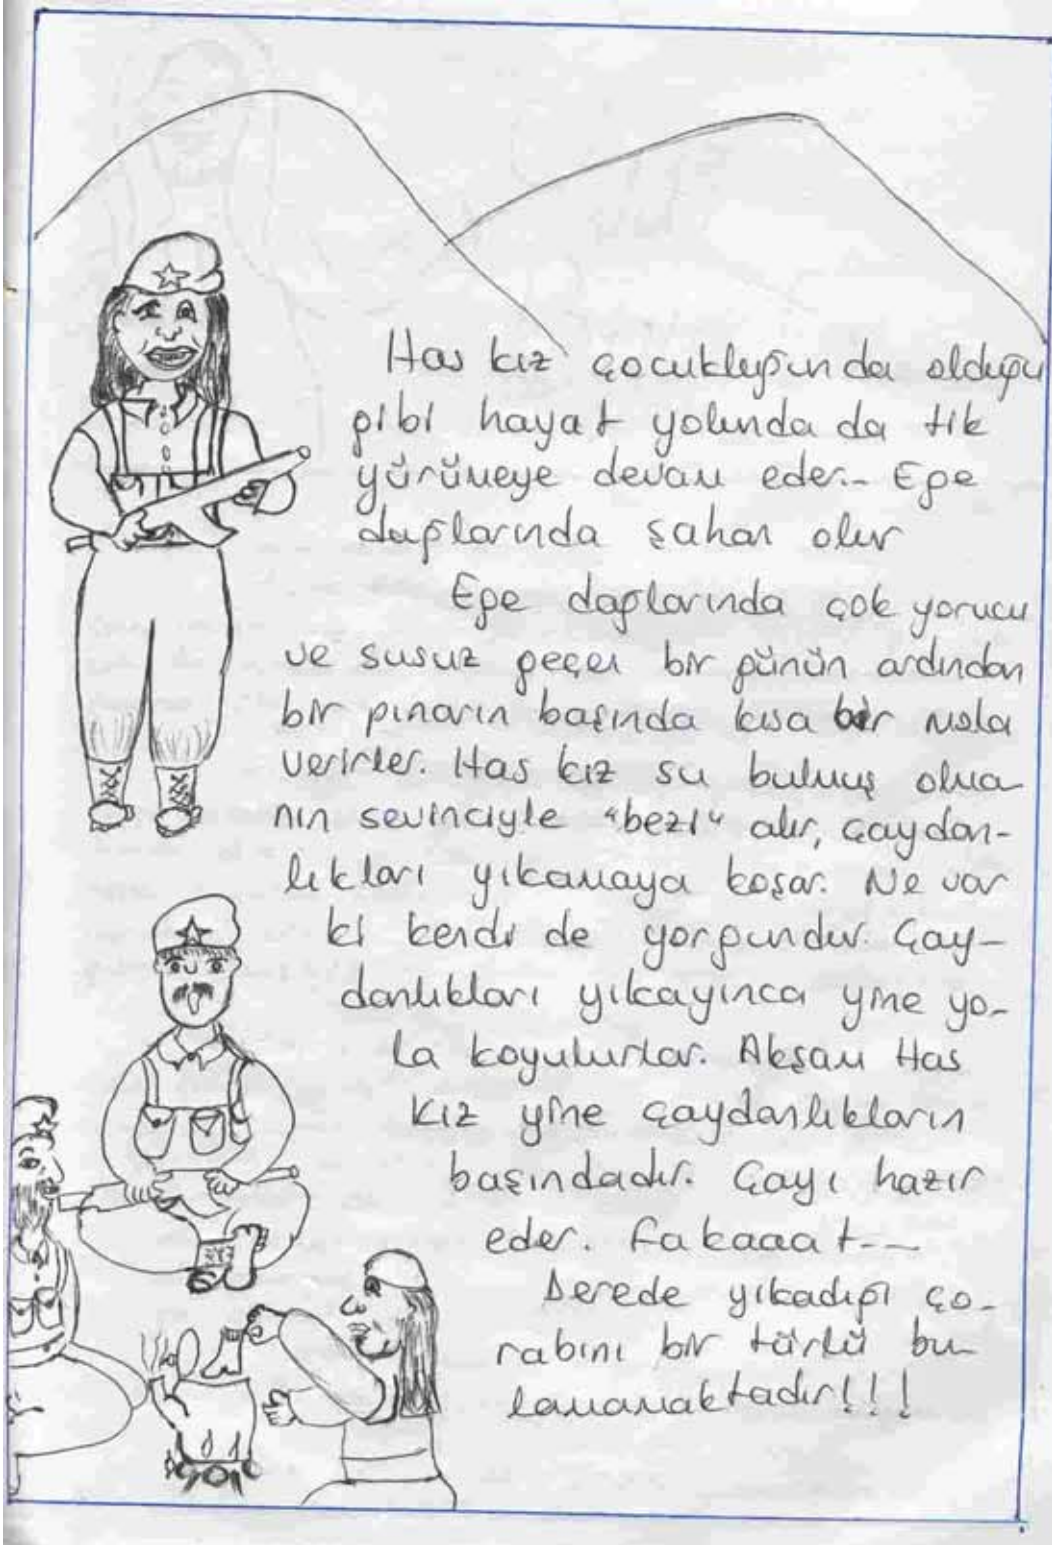 Has kız çocukluğunda olduğu
gibi hayat yolunda da tik
yürümeye devam eder... Ege
dağlarında şahan olur
Ege dağlarında çok yorucu
ve susuz geçen bir günün ardından
bir pınarın başında kısa bir mola
verirler. Has kız su bulmuş olma-
nın sevinciyle "bezi" alır, çaydan-
lıkları yıkamaya koşar. Ne var
ki kendi de yorgundur. Çay-
danlıkları yıkayınca yine yo-
la koyulurlar. Akşam Has
kız yine çaydanlıkların
başındadır. Çayı hazır
eder. Fakaaat...
Derede yıkadığı ço-
rabını bir türlü bu-
lamamaktadır!!!